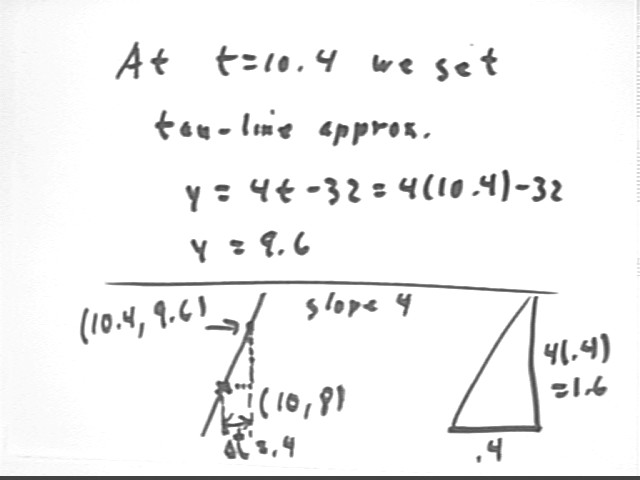 At t=10.4 we set
tan-line approx.
y = 4t - 32 = 4(10.4) - 32
y = 9.6
(10.4, 9.6)
slope 4
(10, 8)
Δt = .4
4(.4)
= 1.6
.4